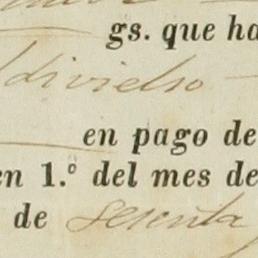 gs. que ha
divielso
en pago de
en 1.º del mes de
de sesenta